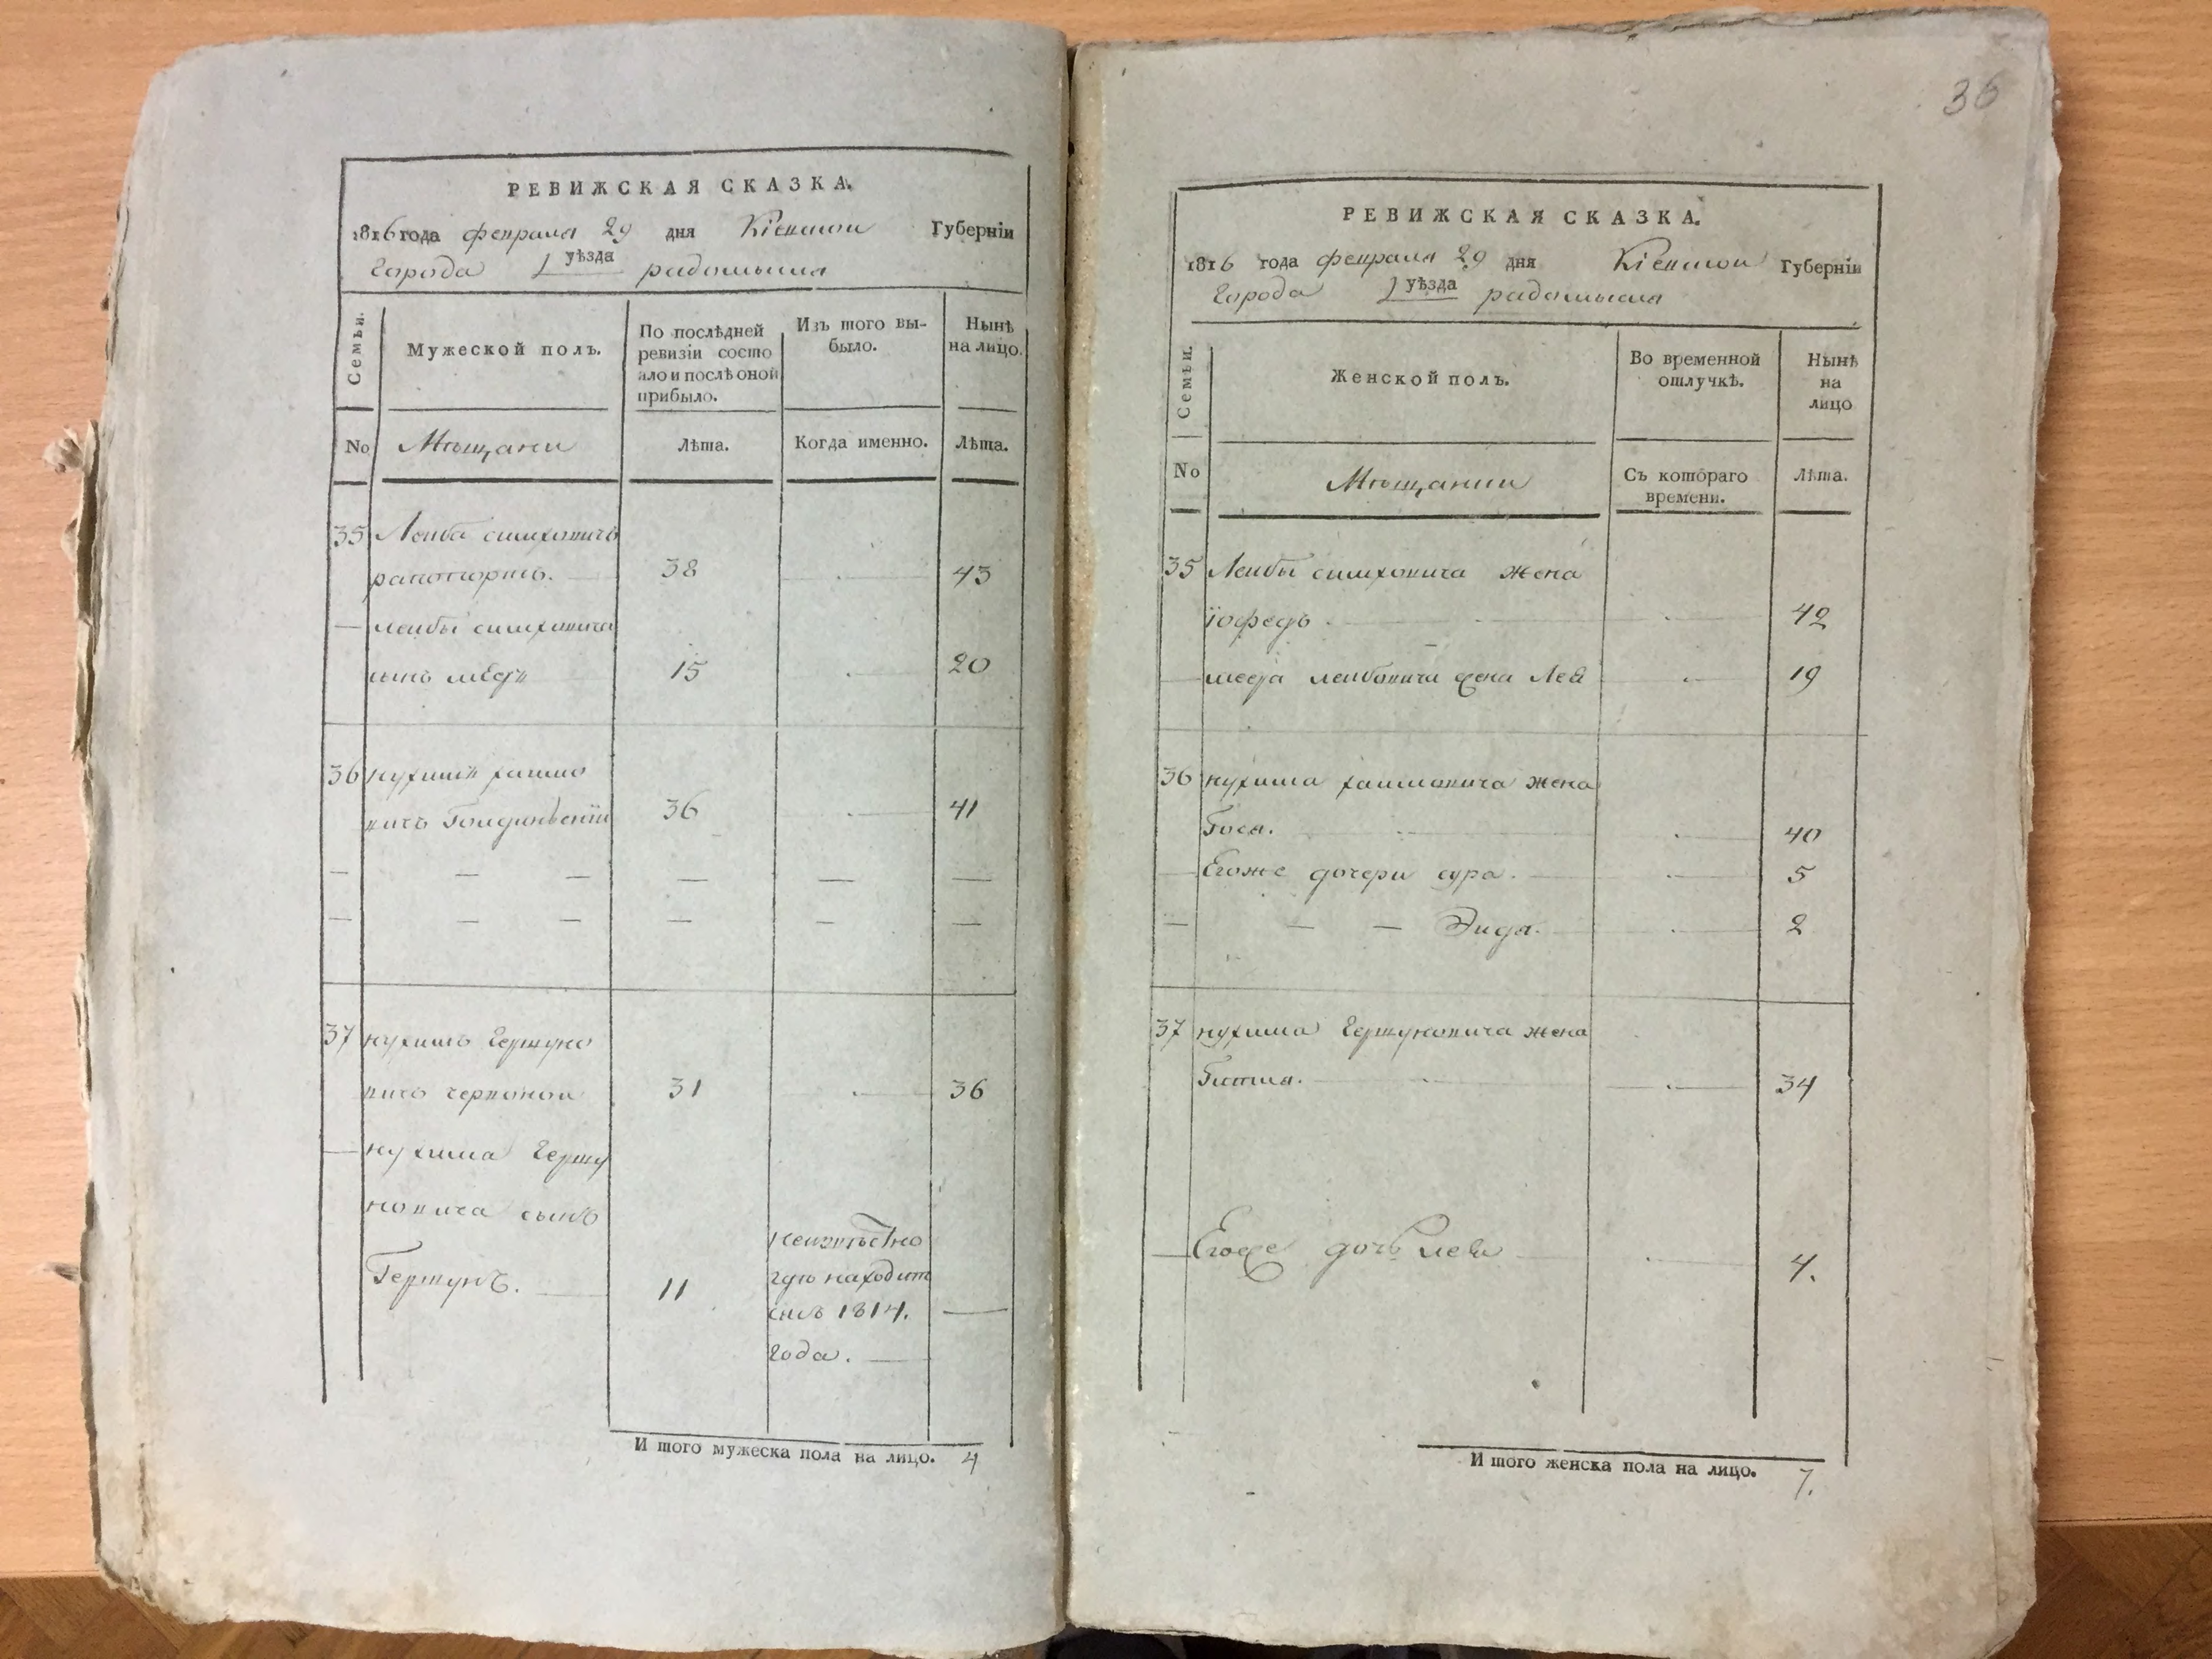 РЕВИЖСКАЯ СКАЗКА.
1816 года февраля 29 дня Кіевской Губерніи
Города уѣзда радомысля
Семьи.
Мужеской полъ.
По послѣдней
ревизіи состо
ало и послѣ оной
прибыло.
Изъ того вы-
было.
Нынѣ
на лицо.
No Мѣщани Лѣта. Когда именно. Лѣта.
35 Леиба симховичъ
38 43
— леибы симховича
сынъ 15 20
36 нухимъ хаимо
вичъ 36 41
— — — — — —
— — — — — —
37 нухимъ Гершуно
вичъ червоной 31 36
— нухима Гершу
новича сынъ
Гершунъ. 11
неизвѣстно
гдѣ находит
съ 1814.
года.
И того мужеска пола на лицо. 4
36
РЕВИЖСКАЯ СКАЗКА.
1816 года февраля 29 дня Кіевской Губерніи
Города уѣзда радомысля
Семьи.
Женской полъ.
Во временной
отлучкѣ.
Нынѣ
на
лицо
No Мѣщании Съ котораго
времени.
Лѣта.
35 Леибы симховича жена
42
— леибовича жена Лея 19
36 нухима хаимовича жена
Гося. 40
— Егоже дочери сура. 5
— — — Эида. 2
37 нухима Гершуновича жена
Гитля. 34
— Егоже дочь лея 4.
И того женска пола на лицо. 7.